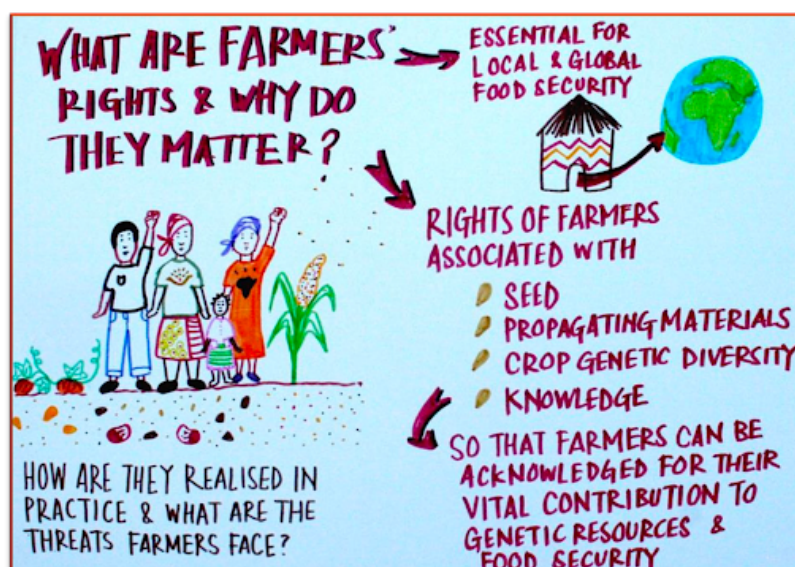 WHAT ARE FARMERS'
RIGHTS & WHY DO
THEY MATTER?
ESSENTIAL FOR
LOCAL & GLOBAL
FOOD SECURITY
RIGHTS OF FARMERS
ASSOCIATED WITH
SEED
PROPAGATING MATERIALS
CROP GENETIC DIVERSITY
KNOWLEDGE
SO THAT FARMERS CAN BE
ACKNOWLEDGED FOR THEIR
VITAL CONTRIBUTION TO
GENETIC RESOURCES &
FOOD SECURITY
HOW ARE THEY REALISED IN
PRACTICE & WHAT ARE THE
THREATS FARMERS FACE?